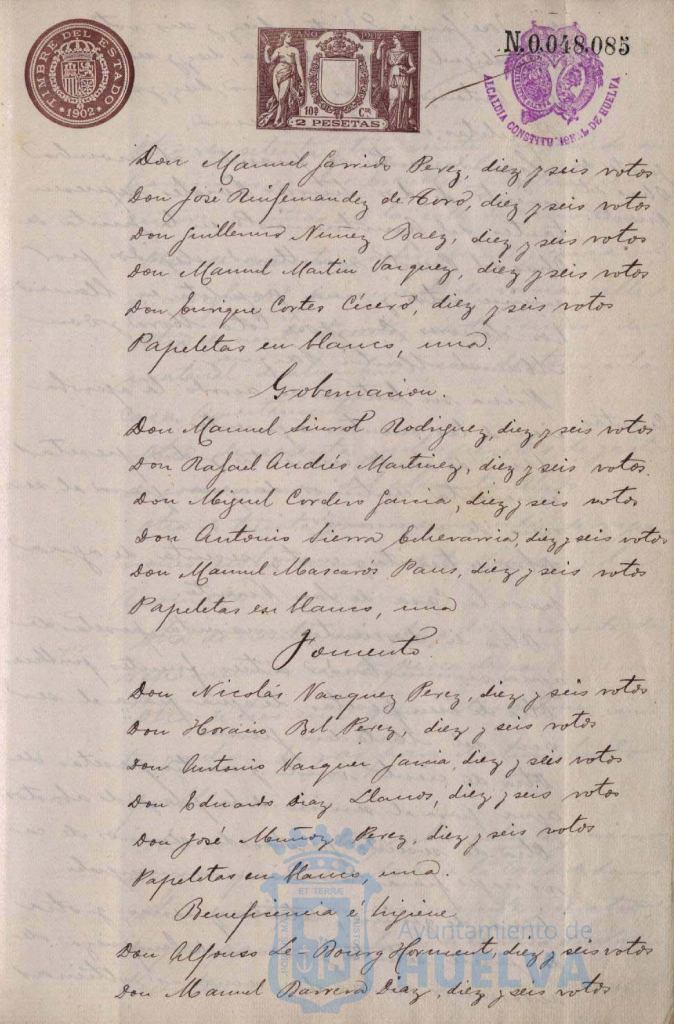 TIMBRE DEL ESTADO
1902
AÑO 1902
10ª Cse
2 PESETAS
N.0.048.085
ALCALDIA CONSTITUCIONAL DE HUELVA
Don Manuel Garrido Perez, diez y seis votos
Don José Ruifernandez de Toro, diez y seis votos
Don Guillermo Nuñez Baez, diez y seis votos
Don Manuel Martin Vazquez, diez y seis votos
Don Enrique Cortes Cícero, diez y seis votos
Papeletas en blanco, una.
Gobernacion.
Don Manuel Siurot Rodriguez, diez y seis votos
Don Rafael Andrés Martinez, diez y seis votos.
Don Miguel Cordero Garcia, diez y seis votos
Don Antonio Sierra Echevarria, diez y seis votos
Don Manuel Mascarós Paus, diez y seis votos
Papeletas en blanco, una
Fomento.
Don Nicolás Vazquez Perez, diez y seis votos
Don Horacio Bel Perez, diez y seis votos
Don Antonio Garcia, diez y seis votos
Don Eduardo Diaz Llanos, diez y seis votos
Don José Muñoz Perez, diez y seis votos
Papeletas en blanco, una.
Beneficencia é higiene
Don Alfonso Le-Bourg Horment, diez y seis votos
Don Manuel Barrera Diaz, diez y seis votos
ET TERRÆ
Ayuntamiento de
HUELVA